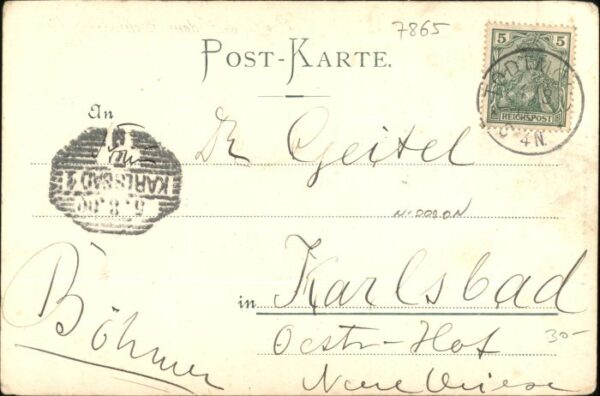 7865
POST-KARTE.
5 5
REICHSPOST
4 N.
An
Dr Geitel
in Karlsbad
Oestr-Hof
Neue Wiese
Böhmen
KARLSBAD 1
5.8.00
30-